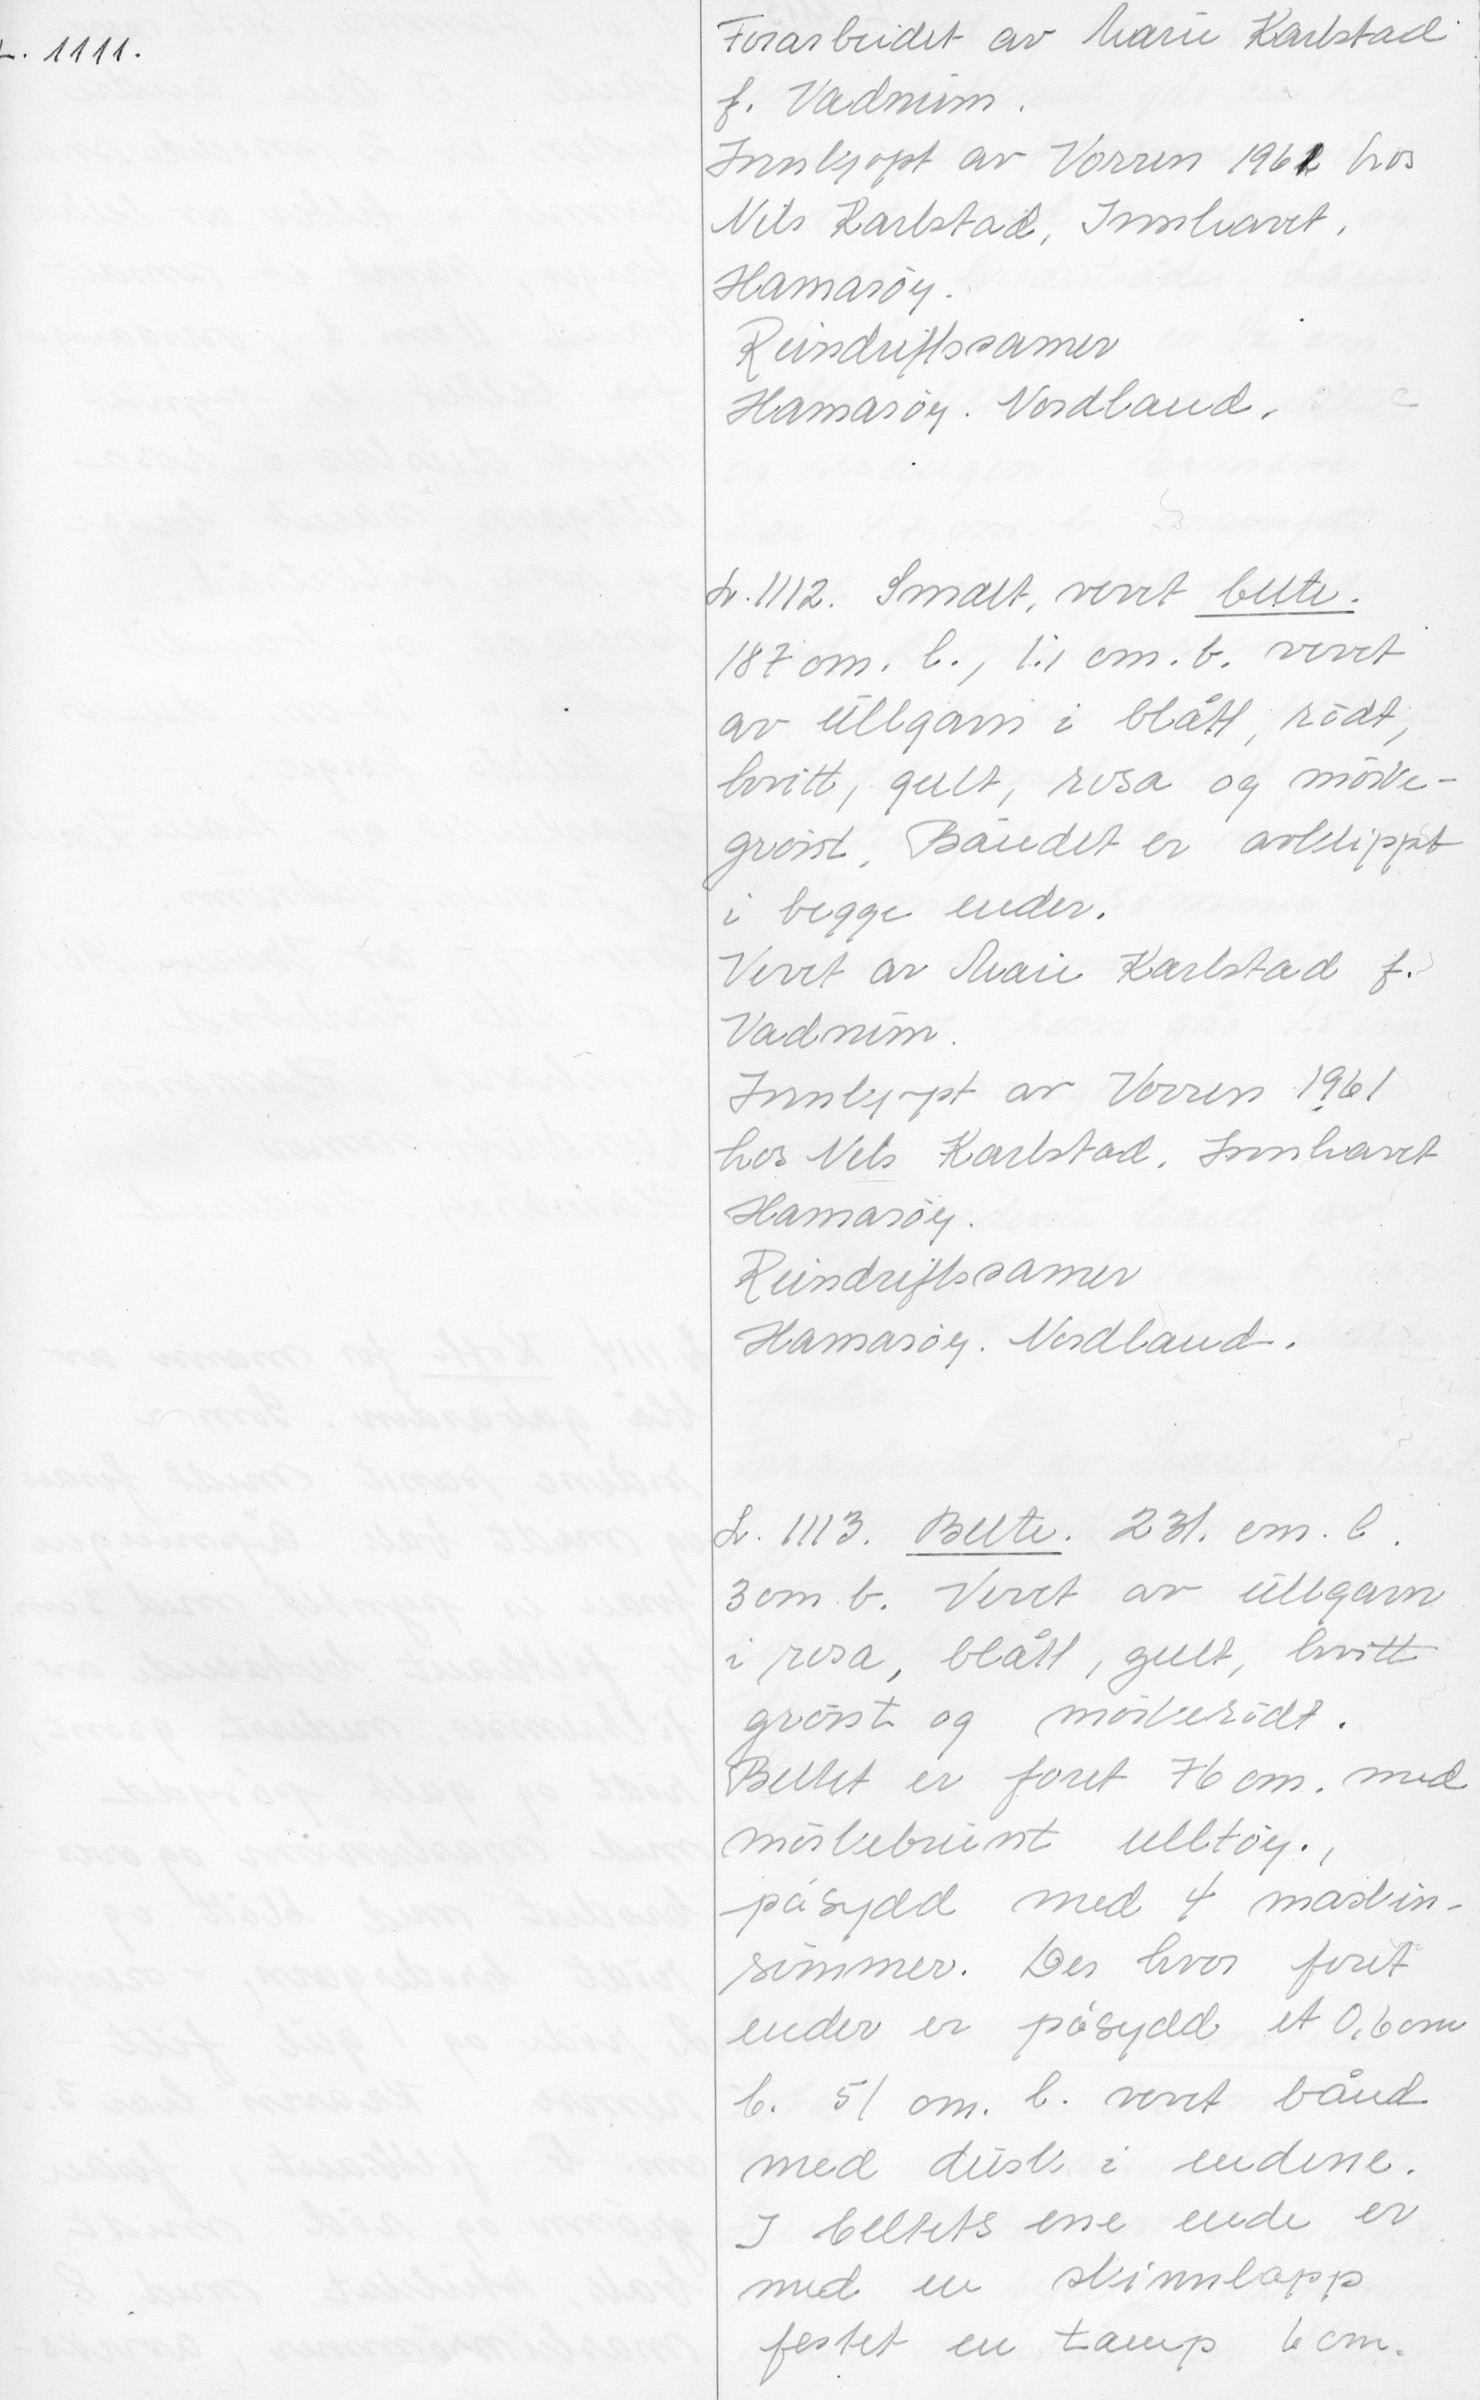 L. 1111.
Forarbeidet av Marie Karlstad
f. Vadnum.
Innkjøpt av Vorren 1961 hos
Nils Karlstad, Innhavet,
Hamarøy.
Reindriftssamer
Hamarøy. Nordland.
L. 1112. Smalt, vevet belte.
187 cm. l., 1.1 cm. b. vevet
av ullgarn i blått, rødt,
hvitt, gult, rosa og mörke-
grönt. Båndet er avklippt
i begge ender.
Vevet av Marie Karlstad f.
Vadnum.
Innkjøpt av Vorren 1961
hos Nils Karlstad, Innhavet
Hamarøy.
Reindriftssamer
Hamarøy. Nordland.
L. 1113. Belte. 231. cm. l.
3 cm b. Vevet av ullgarn
i rosa, blått, gult, hvitt
grönt og mörkerödt.
Beltet er foret 76 cm. med
mörkebrunt ulltöy.,
påsydd med 4 maskin-
sömmer. Der hvor foret
ender er påsydd et 0,6 cm
b. 51 cm. l. vevet bånd
med dusk i endene.
I beltets ene ende er
med en skinnlapp
festet en tamp 6 cm.